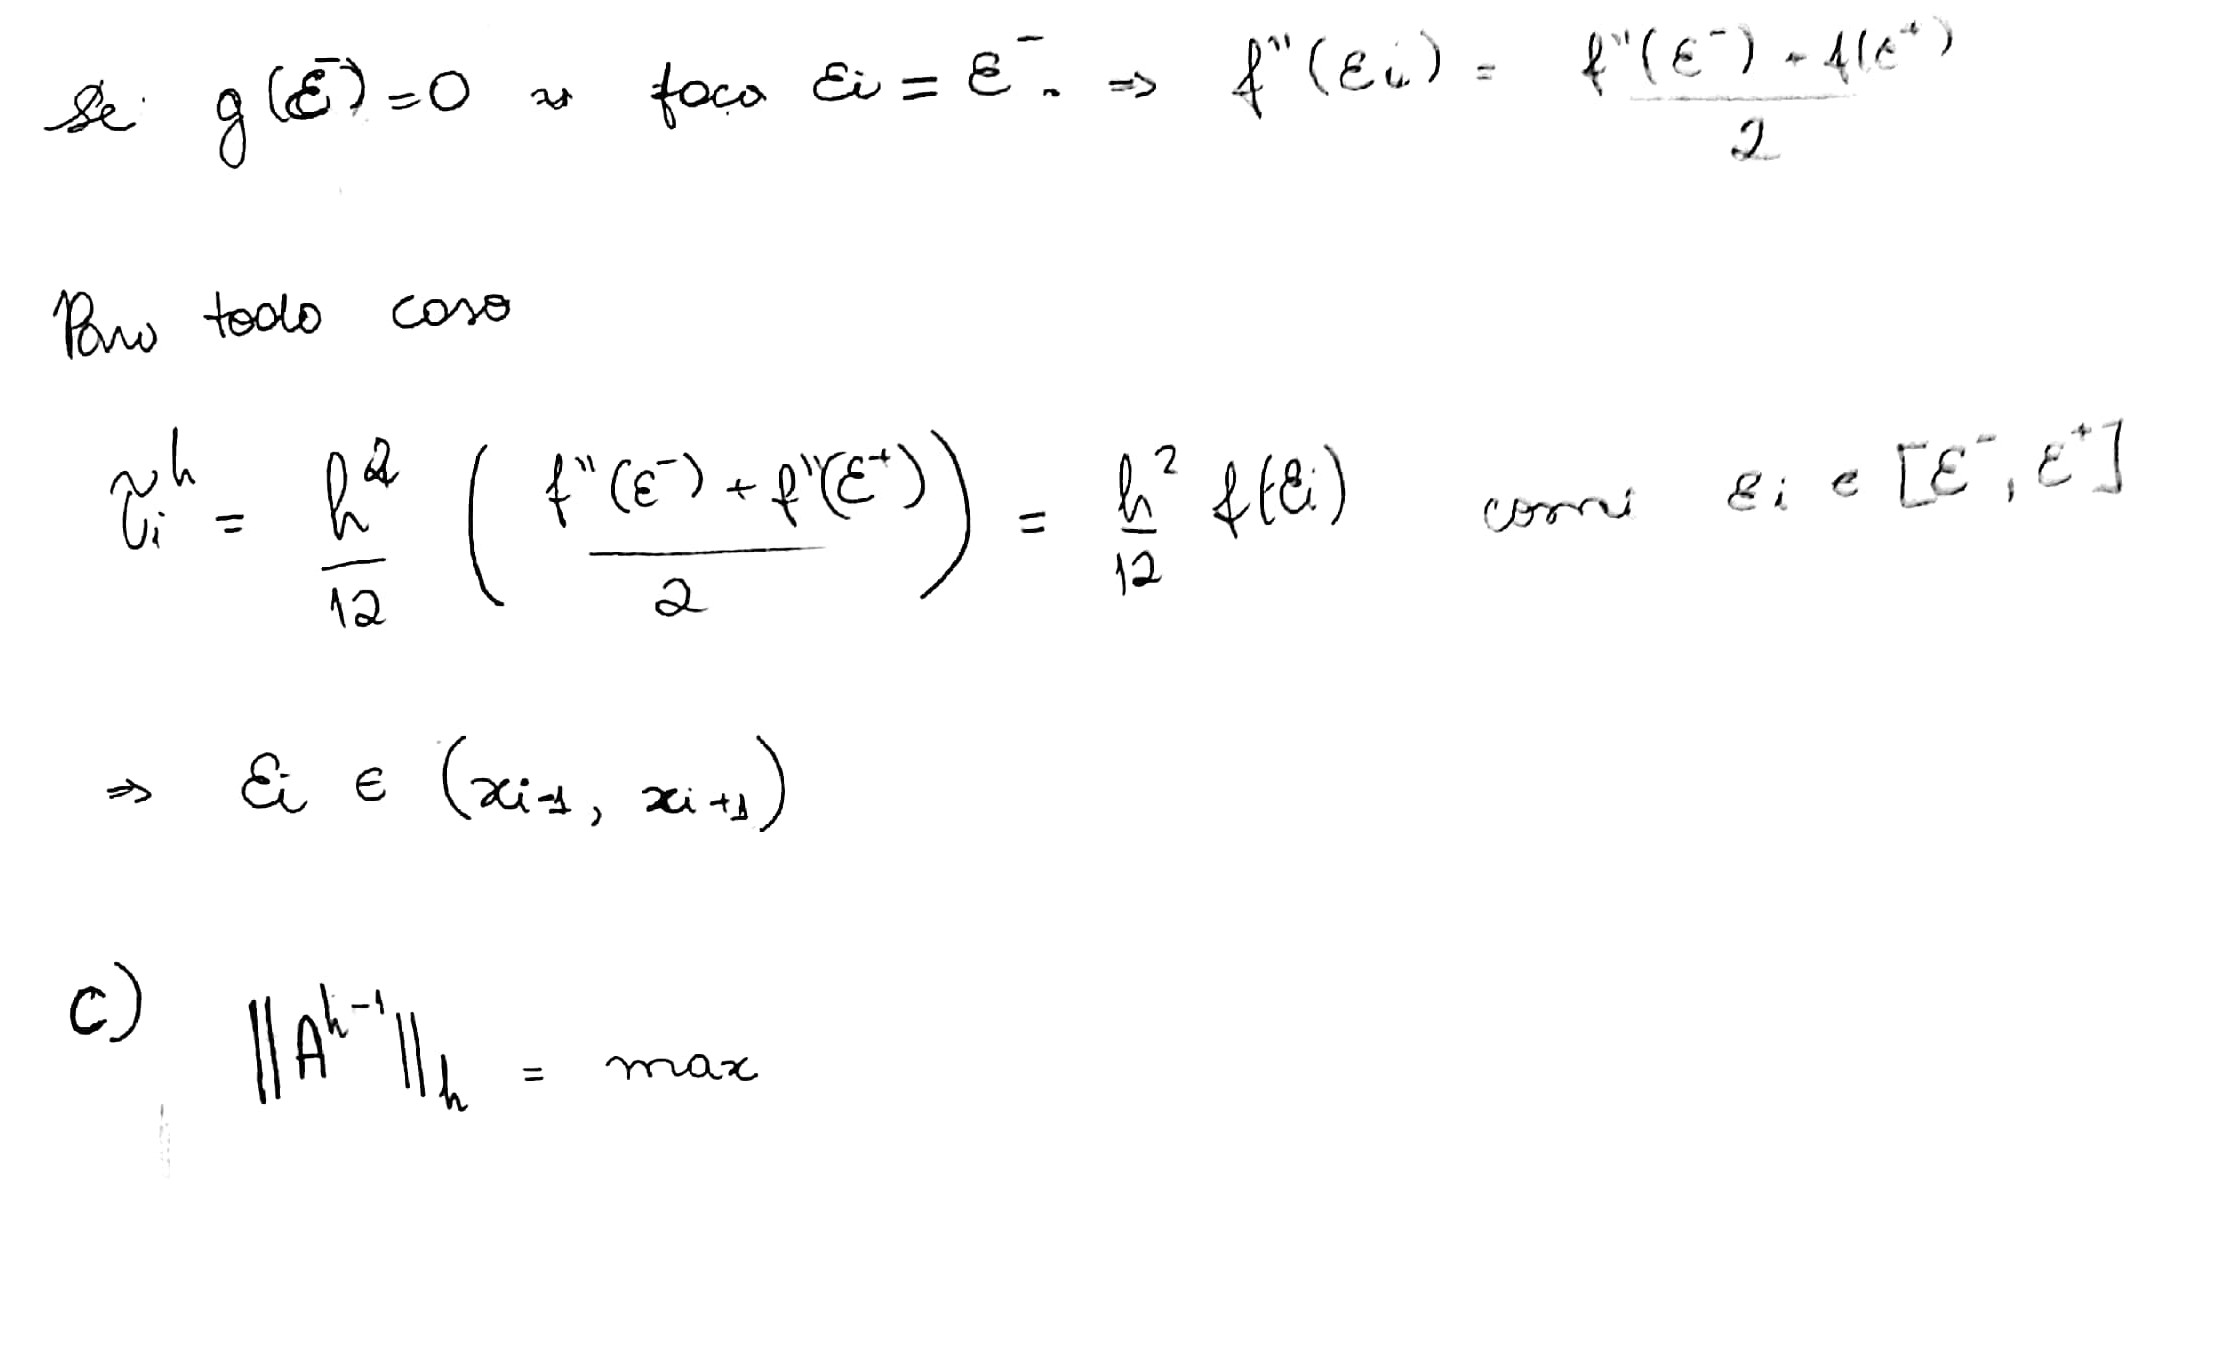 Se g(ε⁻)=0 ⇝ faça εi = ε⁻. ⇒ f''(εi) = (f''(ε⁻) + f(ε⁺))/2
Para todo caso
τ̃ᵢʰ = h²/12 ( (f''(ε⁻) + f''(ε⁺))/2 ) = h²/12 f(εi) com εi ∈ [ε⁻, ε⁺]
⇒ εi ∈ (xi-1, xi+1)
c) ||Aʰ⁻¹||ₕ = max